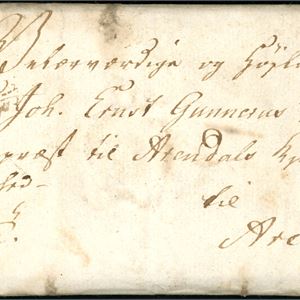 Velærværdige og Høyl
Joh. Ernst Gunnerus
præst til Arendals Kjø
hed-
til
Are